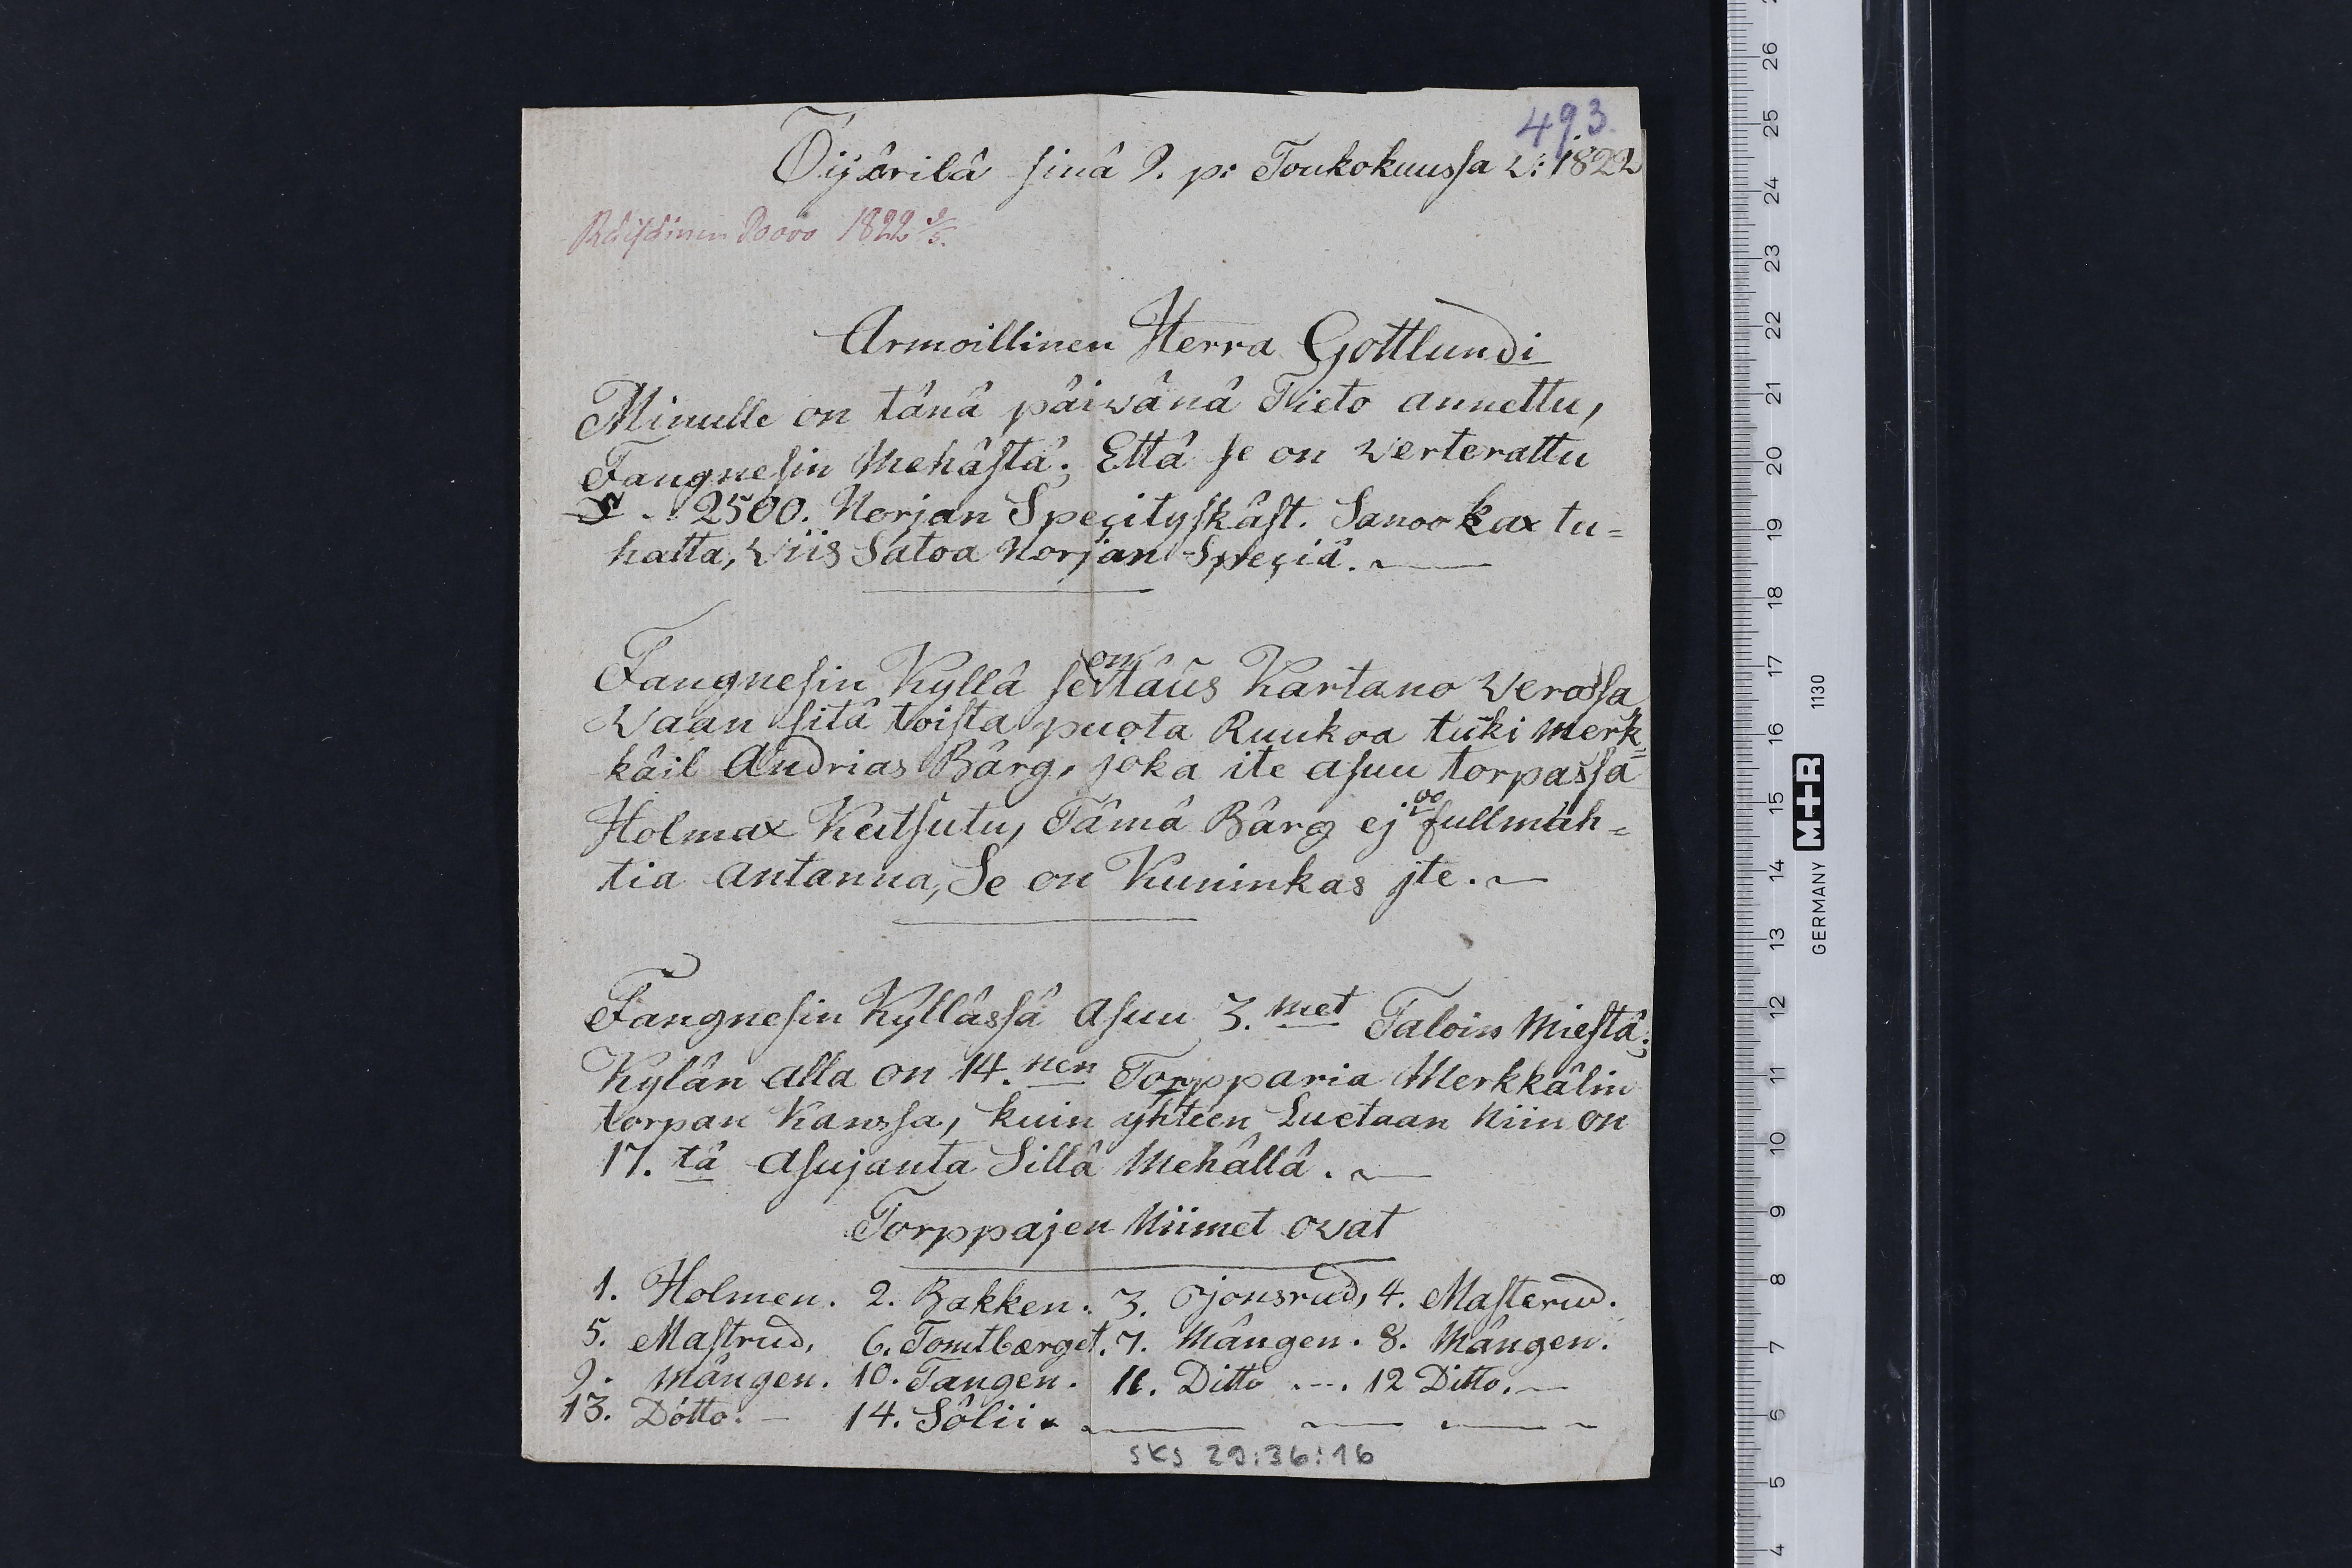 493.
Öijärilä sinä 9. p: Toukokuussa v: 1822
Räisäinen Paavo 1822 9/5.
Armoillinen Herra Gottlundi
Minulle on tänä päivänä Tieto annettu,
Fangnesin Mehästä; Että se on werterattu
S - : 2500. Norjan Speçityskäst. Sanoo kax tu=
hatta, Viis Satoa Norjan Speçiä. ~
Fangnesin Kyllä se on täüs Kartano Verossa
Vaan sitä toista puota Ruukoa tüki Merk=
käil Andrias Bärg, joka ite asuu torpassa
Holmax Kutsutu, Tämä Bärg ej oo fullmäh=
tia antanna, Se on Kuninkas jte. ~
Fangnesin Kyllässä Asuu 3. met Taloin Miestä;
Kylän alla on 14. nen Torpparia Merkkälin
torpan Kanssa, kuin yhteen Luetaan Niin on
17. tä Asujanta Sillä Mehällä. ~
Torppajen Niimet ovat
1. Holmen. 2. Bakken. 3. Ojonsrud, 4. Masterud.
5. Mastrud, 6. Tomtbærget. 7. Mängen. 8. Mängen.
9. Mängen. 10. Tangen. 11. Ditto .-. 12 Ditto. ~
13. Dótto. - 14. Sölii.
SKS 29:36:16
26
25
24
23
22
21
20
19
18
17
16
15
14
13
12
11
10
9
8
7
6
5
4
GERMANY M+R 1130